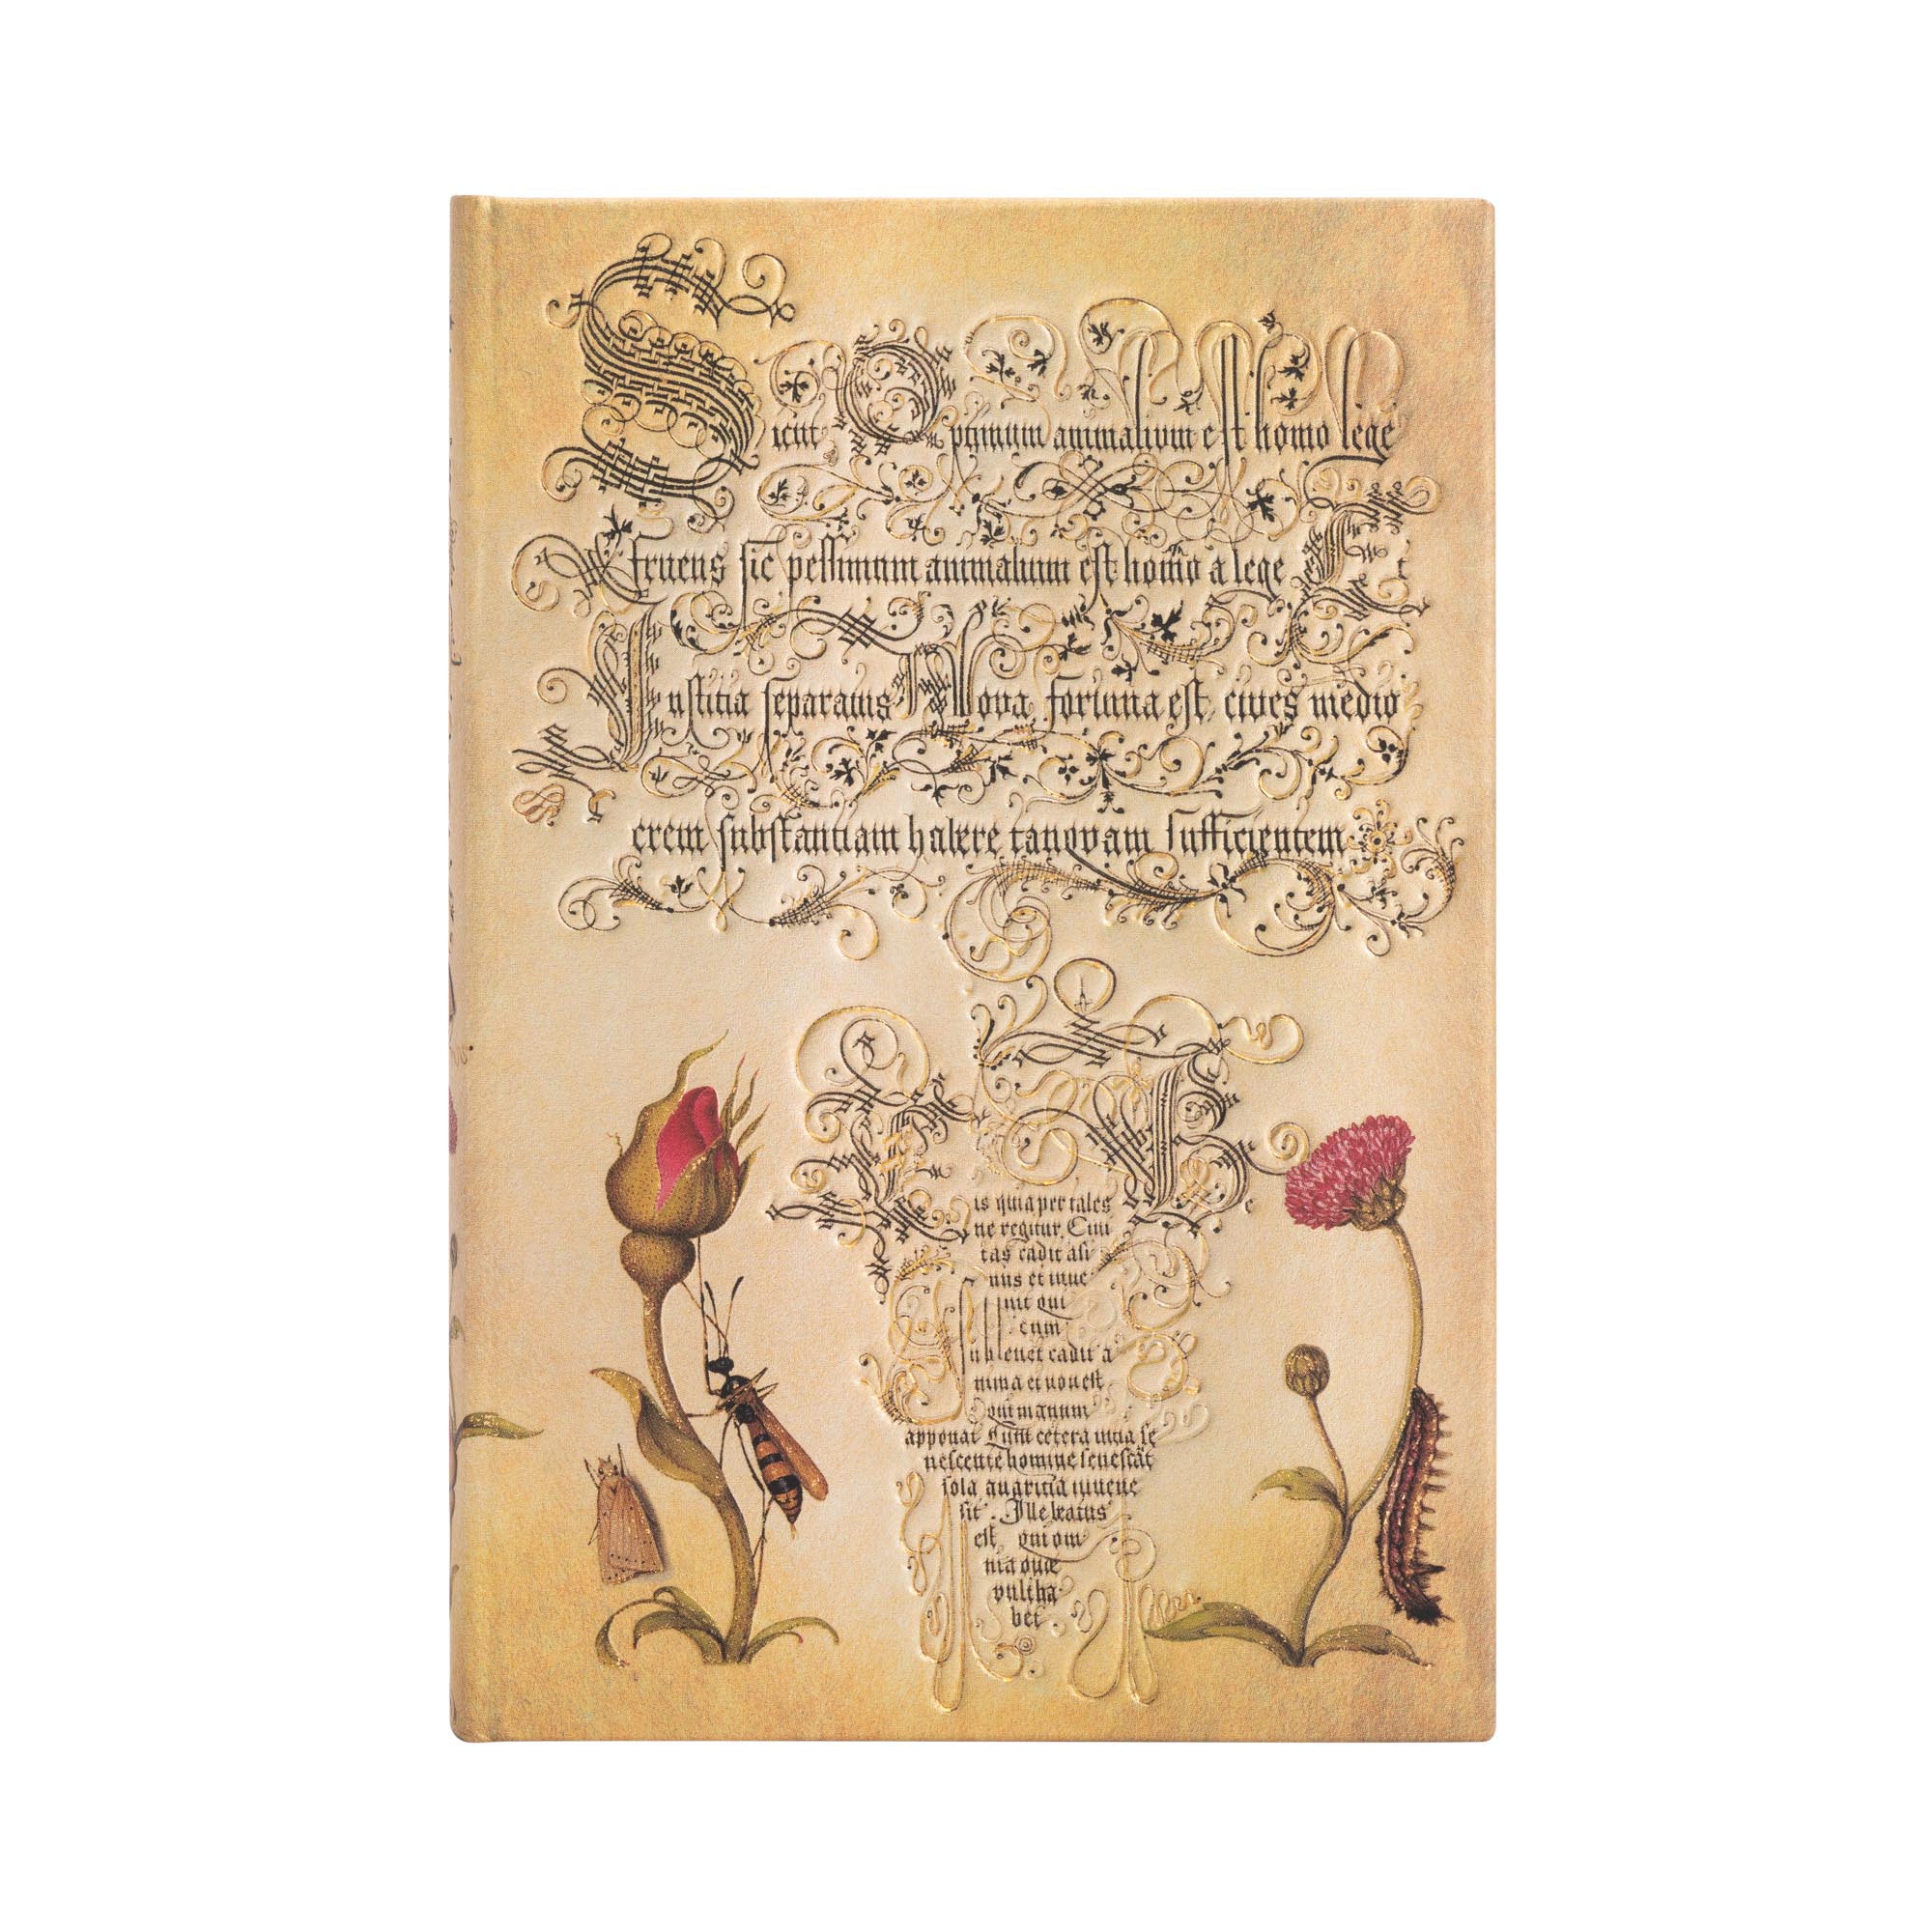 Sicut Optimum animalium est homo lege
fruens sic pessimum animalium est homo a lege Et
Iustitia separatus Nova fortuna est, cives medio
crem substantiam habere tanquam sufficientem
is quia per tales Be
ne regitur. Civi
tas cadit asi
nus et inue
nit qui
eum
subleuet cadit a
nima et non est
qui manum
apponat Cum cetera uitia se
nescente homine senescāt
sola auaritia iuuene
sit. Ille beatus
est, qui om
nia quæ
vult ha
bet.